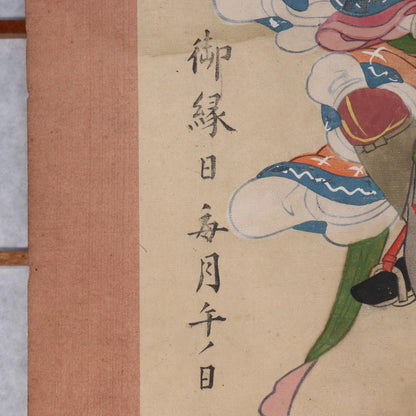 御縁日毎月午ノ日